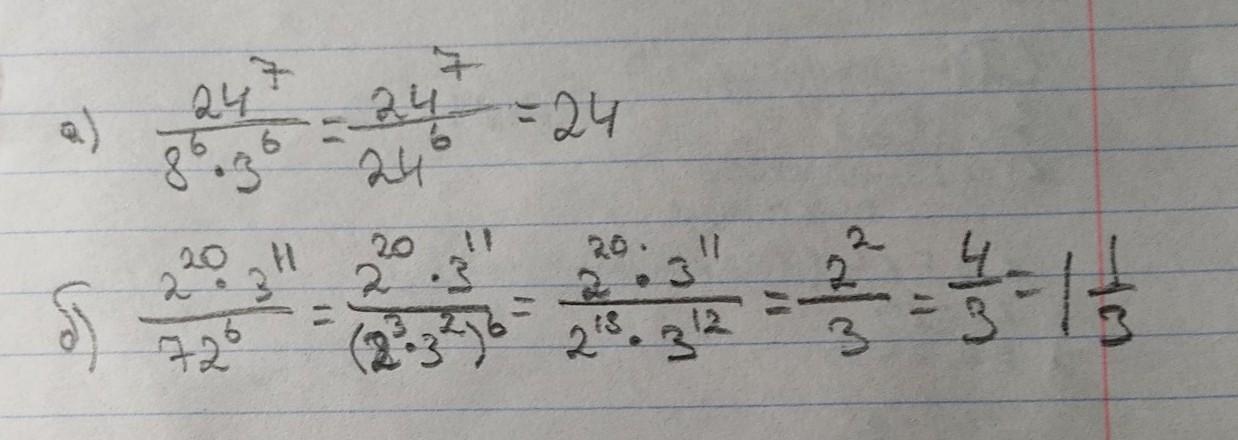 а) 24⁷/(8⁶·3⁶) = 24⁷/24⁶ = 24
б) (2²⁰·3¹¹)/72⁶ = (2²⁰·3¹¹)/(2³·3²)⁶ = (2²⁰·3¹¹)/(2¹⁸·3¹²) = 2²/3 = 4/3 = 1 1/3